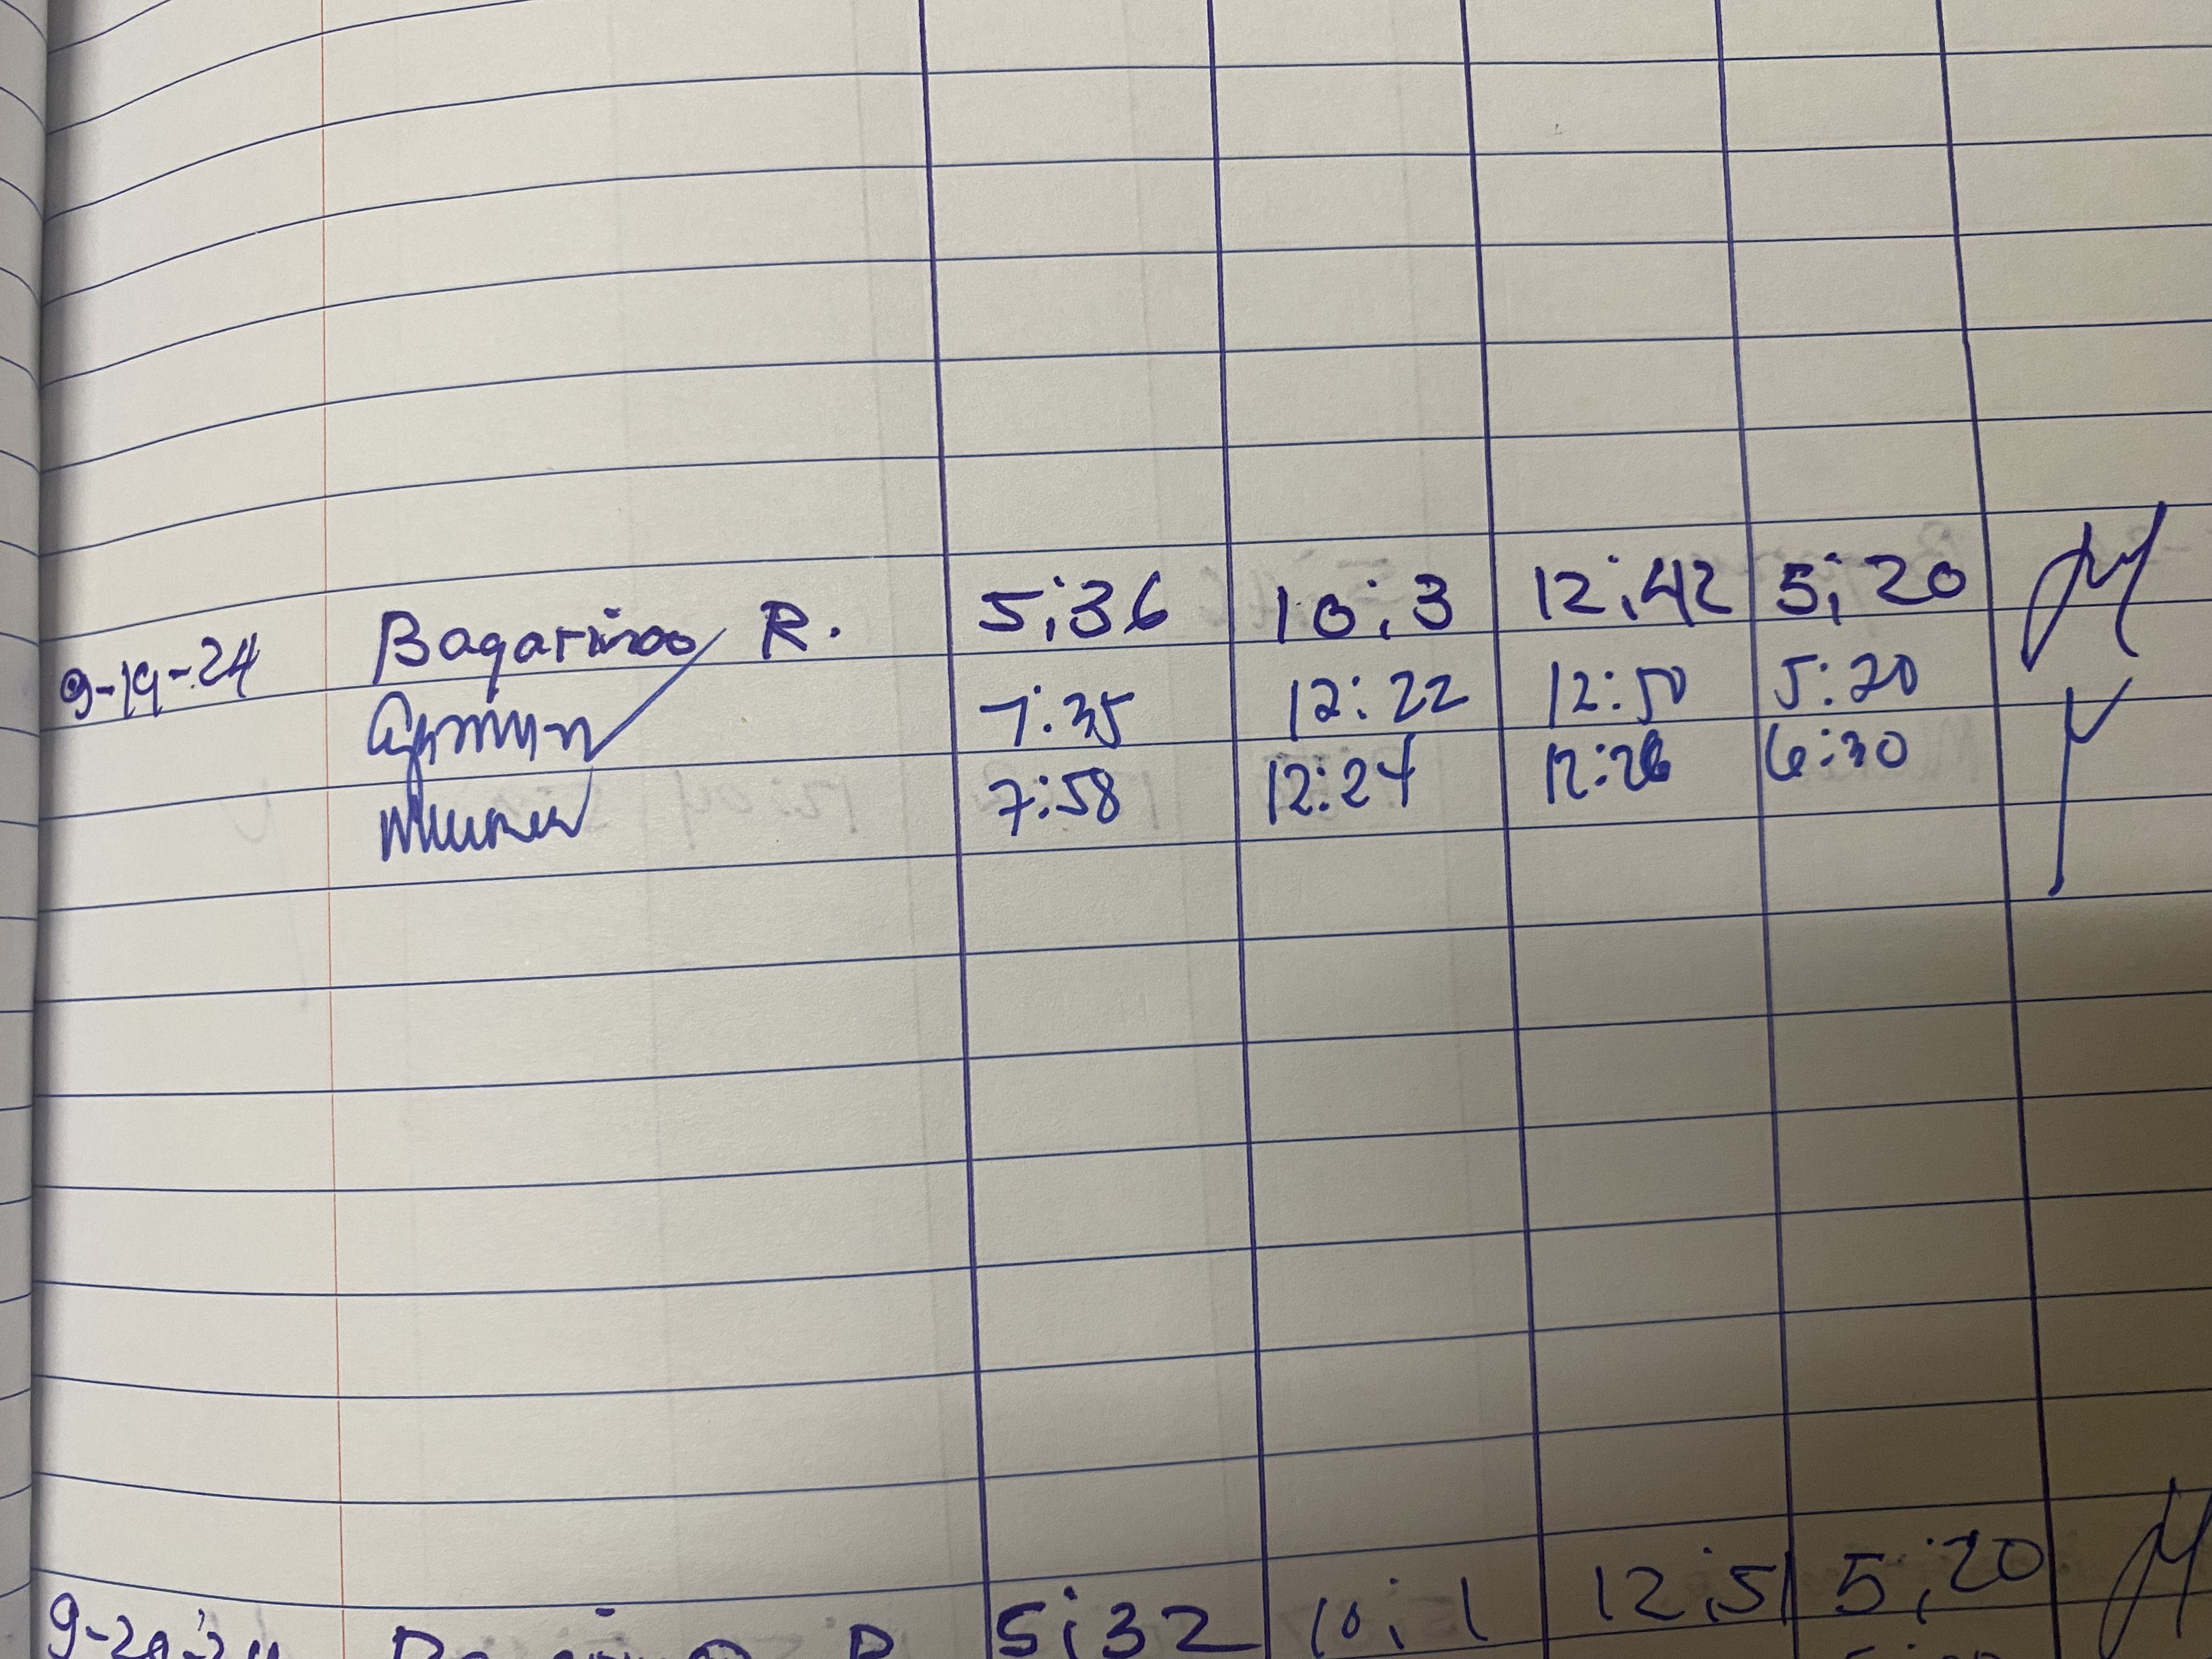 9-19-24 Bagarinao R. 5;36 10;3 12;42 5;20
7:35 12:22 12:50 5:20
7:58 12:24 12:26 6:30
9-20-24 R 5;32 10;1 12;51 5;20